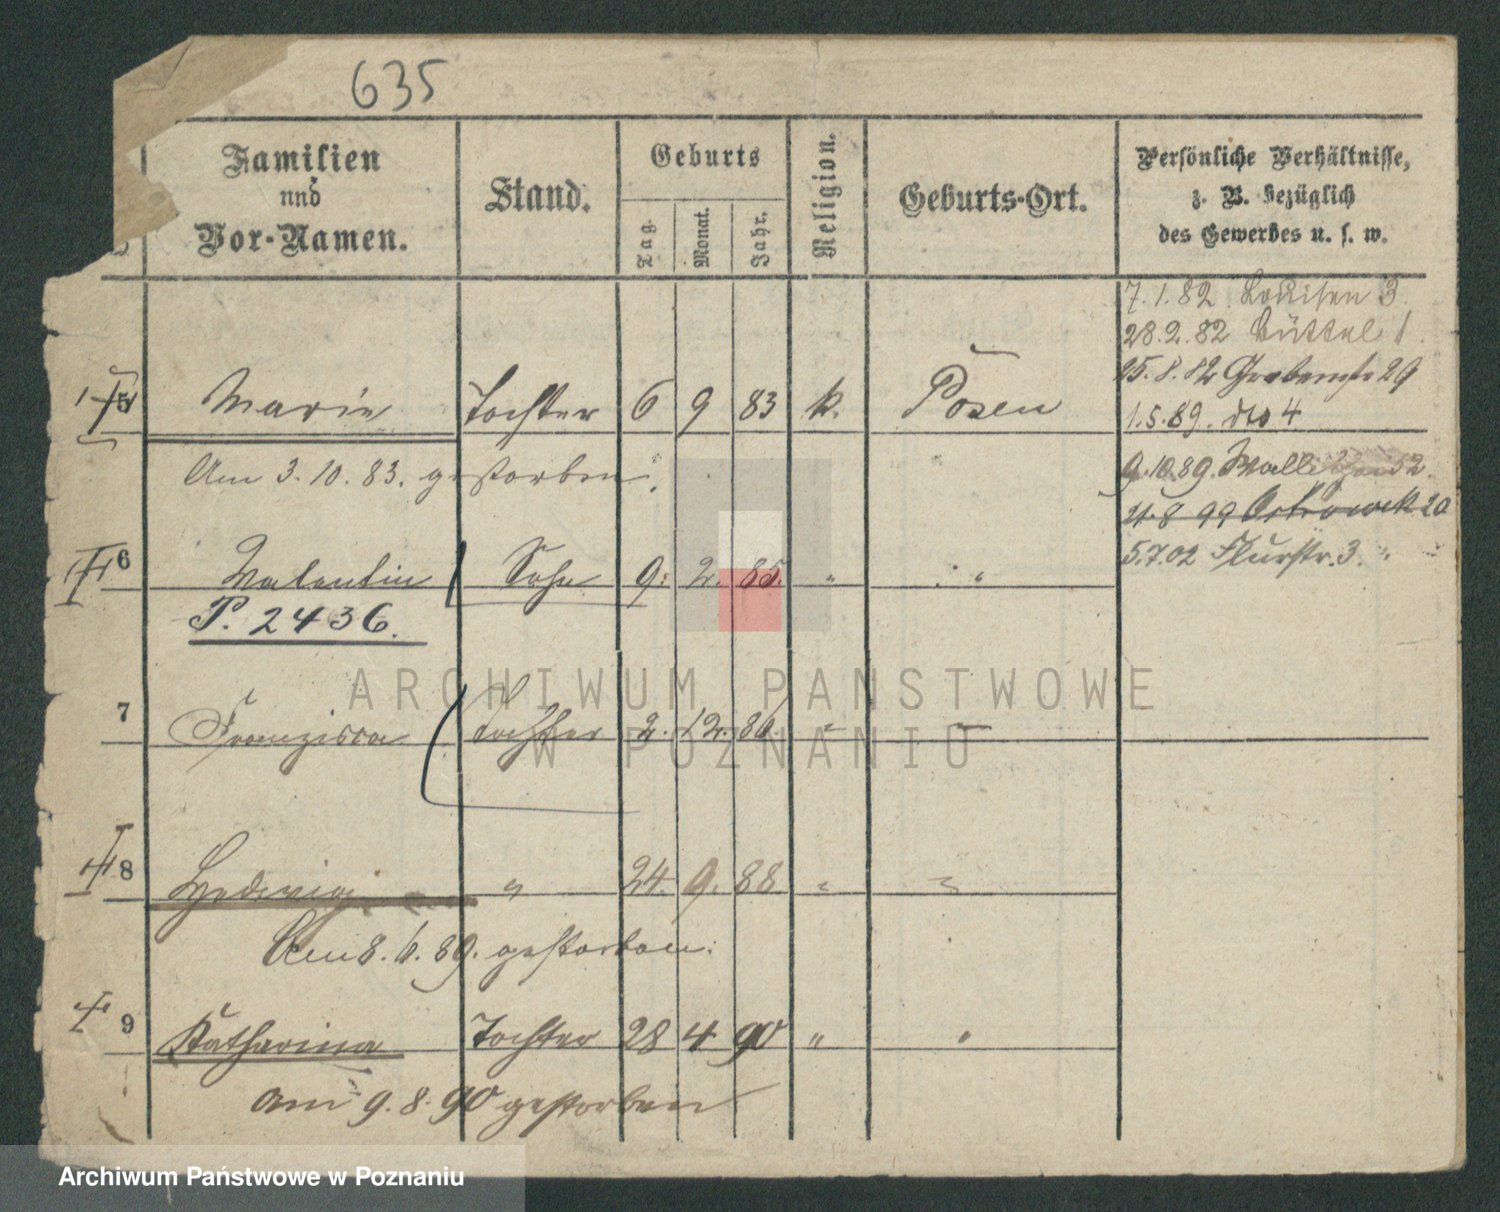 635
Familien
und
Vor-Namen.
Stand.
Geburts
Tag.
Monat.
Jahr.
Religion.
Geburts-Ort.
Persönliche Verhältnisse,
z. B. bezüglich
des Gewerbes u. s. w.
7.1.82 Louisen 3.
28.2.82 Büttel 1.
25.8.82 Grabenstr 29
1.5.89. dto 4
5 Marie Tochter 6 9 83 k. Posen
Am 3.10.83. gestorben.
9.10.89. Wallischei 52.
21.8 99 Ostrowek 20
5.7.02 Flurstr. 3. "
6 Valentin Sohn 9. 2. 85. " "
P. 2436.
7 Franzisca Tochter 2. 12. 86 " "
8 Hedwig " 24. 9. 88 " "
Am 8.6.89. gestorben.
9 Katharina Tochter 28 4 90 " "
am 9.8.90 gestorben
ARCHIWUM PANSTWOWE
W POZNANIU
Archiwum Państwowe w Poznaniu